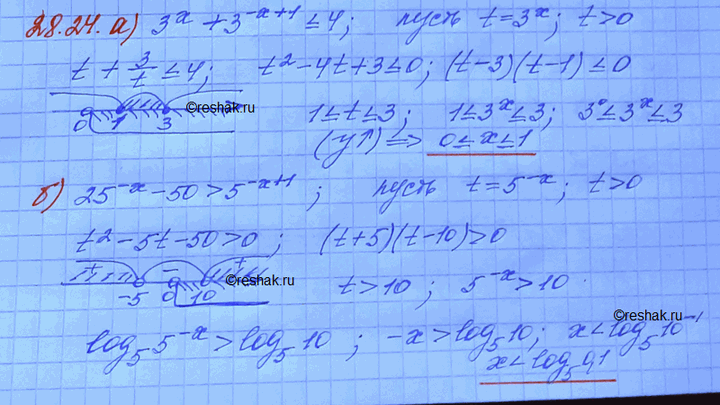 28.24. а) 3^x + 3^{-x+1} ≤ 4; пусть t = 3^x; t > 0
t + 3/t ≤ 4; t² - 4t + 3 ≤ 0; (t-3)(t-1) ≤ 0
0 1 3 ©reshak.ru 1 ≤ t ≤ 3; 1 ≤ 3^x ≤ 3; 3^0 ≤ 3^x ≤ 3
(y↑) ⇒ 0 ≤ x ≤ 1
б) 25^{-x} - 50 > 5^{-x+1}; пусть t = 5^{-x}; t > 0
t² - 5t - 50 > 0; (t+5)(t-10) > 0
+ - + ©reshak.ru
-5 0 10 t > 10; 5^{-x} > 10
©reshak.ru
log_5 5^{-x} > log_5 10; -x > log_5 10; x < log_5 10^{-1}
x < log_5 0,1